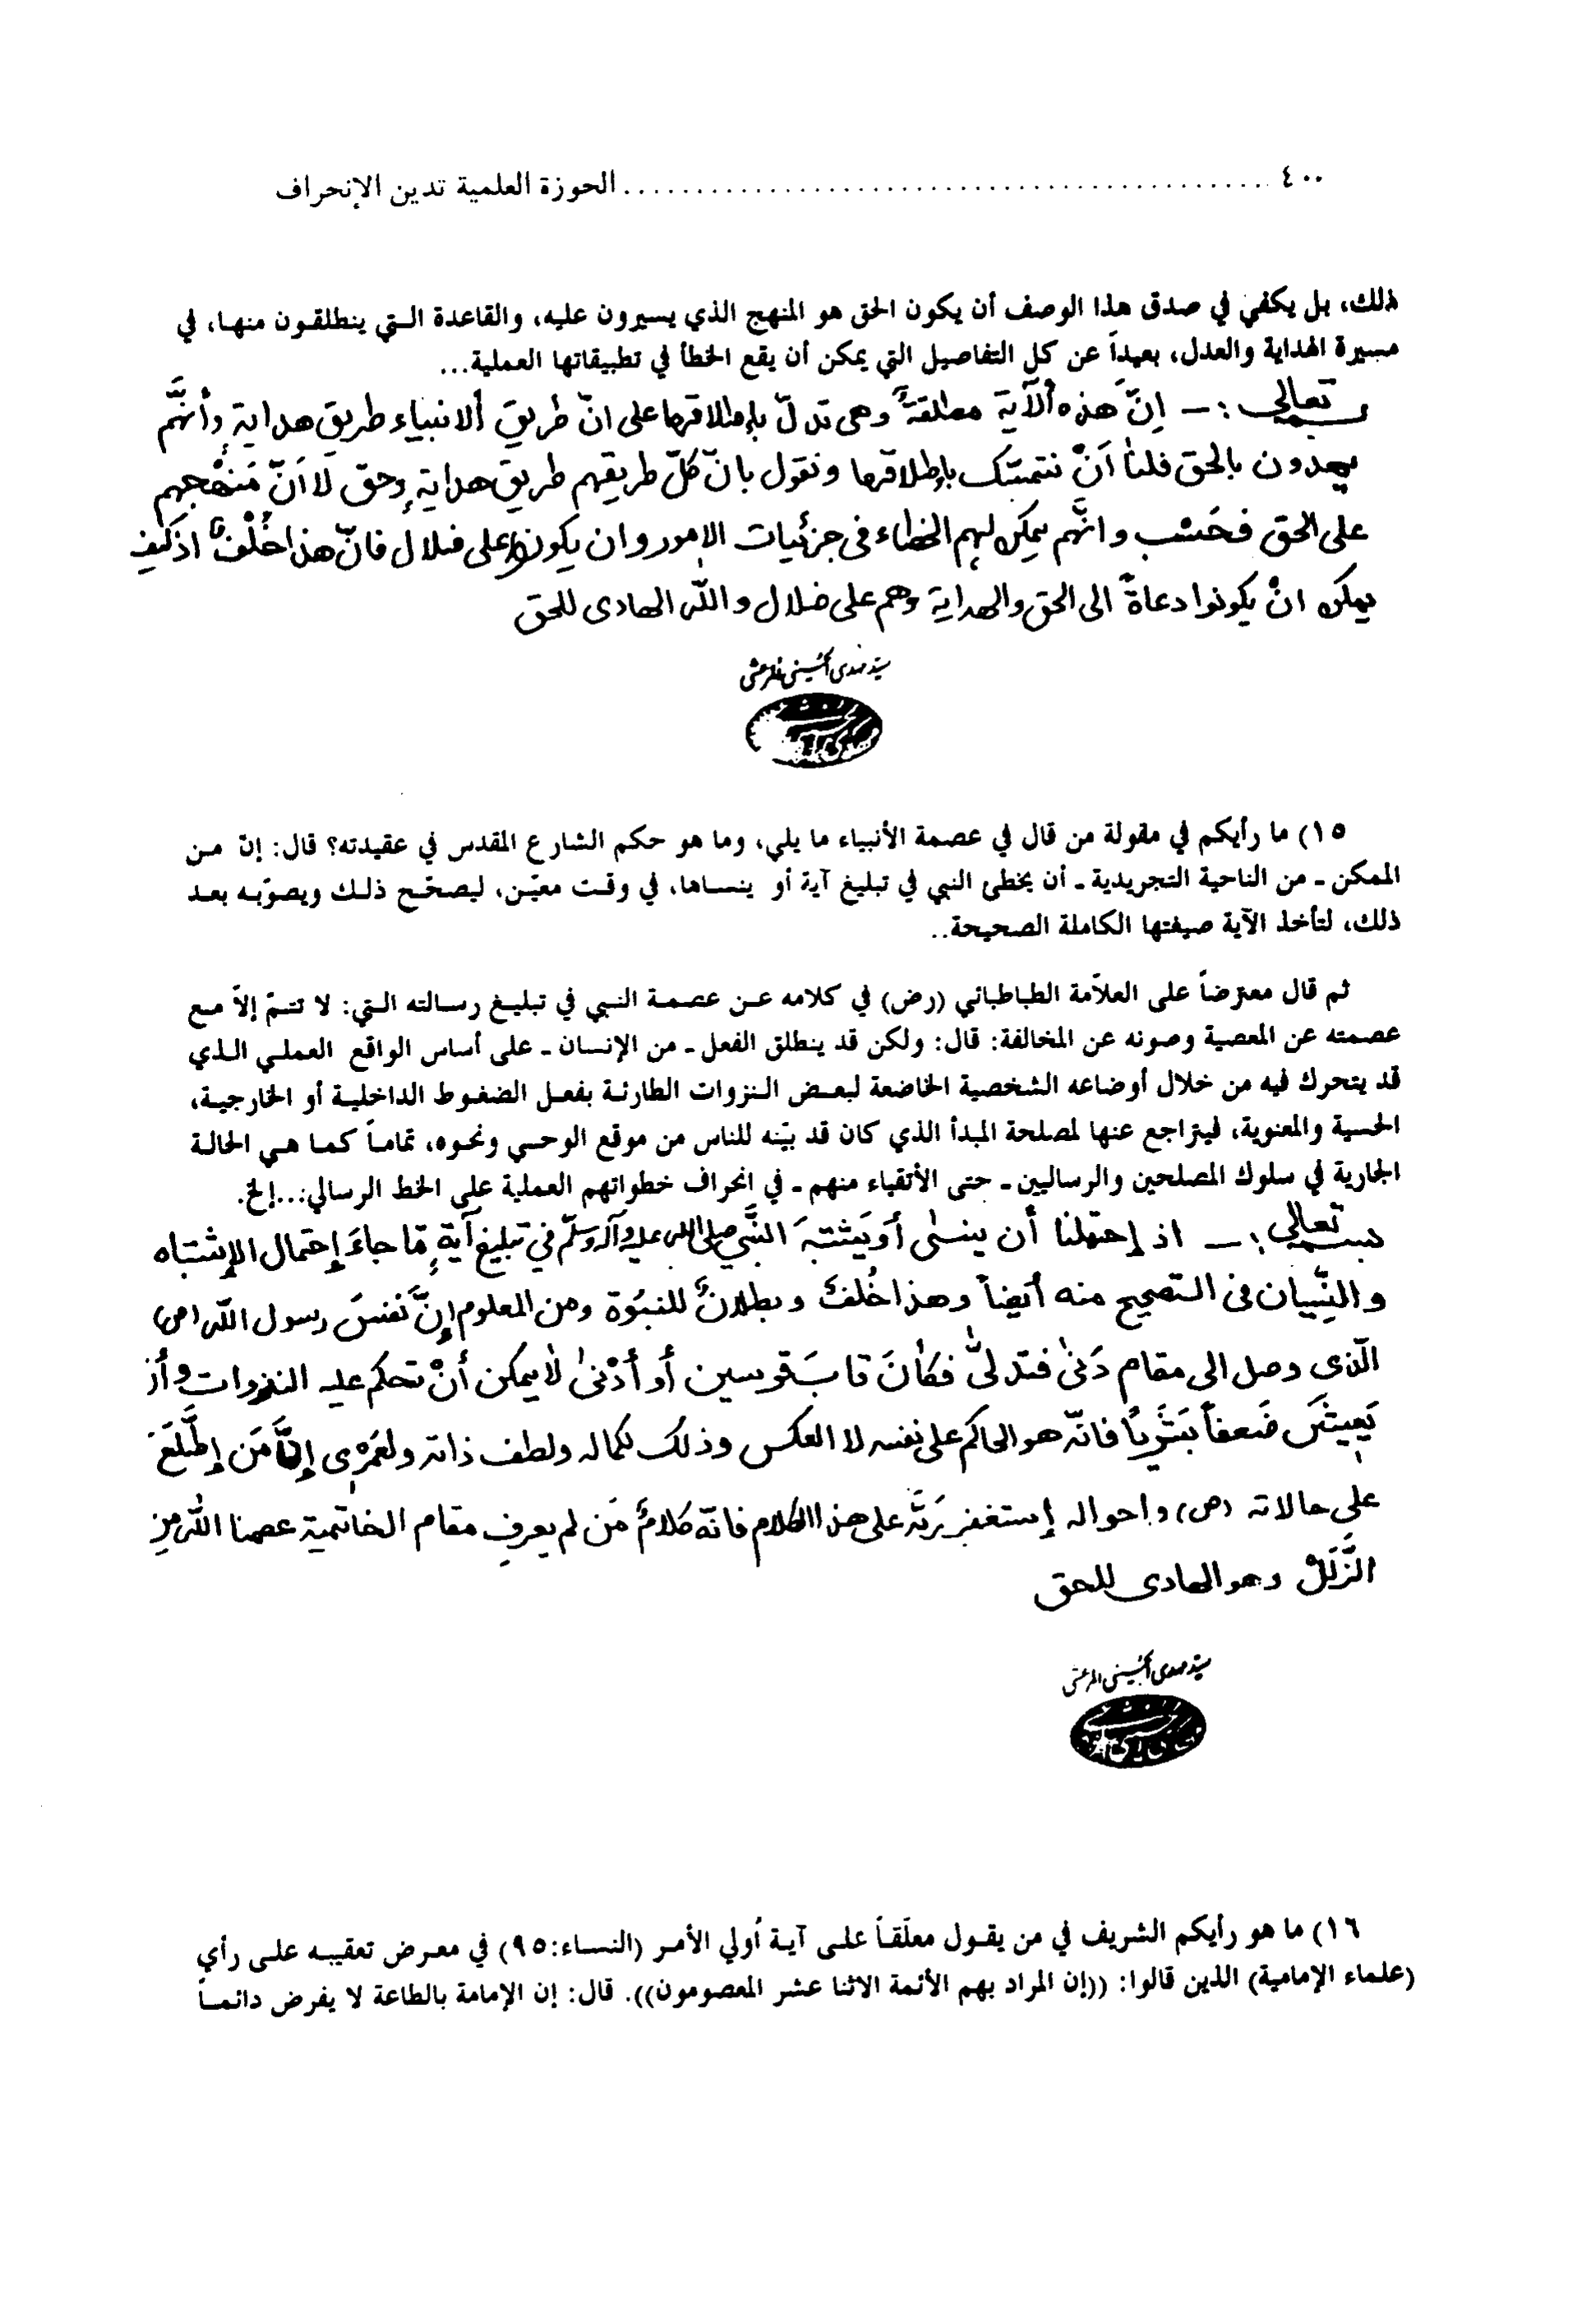 ٤٠٠ ............................................ الحوزة العلمية تدين الإنحراف
ذلك، بل يكفي في صدق هذا الوصف أن يكون الحق هو المنهج الذي يسيرون عليه، والقاعدة التي ينطلقون منها، في
مسيرة الهداية والعدل، بعيداً عن كل التفاصيل التي يمكن أن يقع الخطأ في تطبيقاتها العملية...
بسمه تعالى :ـ إنّ هذه ألآية مطلقةٌ وهى تدلّ بإطلاقها على انّ طريق ألانبياء طريق هداية وأنّهم
يهدون بالحق فلنا أنْ نتمسّك بإطلاقها ونقول بانّ كلّ طريقهم طريق هدايةٍ وحق لا أنّ مَنهْجهم
على الحق فحَسْب وانّهم يمكن لهم الخطاء فى جزئيات الامور وان يكونوا على ضلال فانّ هذا خُلْفٌ اذ كيف
يمكن انْ يكونوا دعاةً الى الحق والهداية وهم على ضلال والله الهادى للحق
سيّد مهدى الحسينى المرعشى
١٥) ما رأيكم في مقولة من قال في عصمة الأنبياء ما يلي، وما هو حكم الشارع المقدس في عقيدته؟ قال: إن من
الممكن ـ من الناحية التجريدية ـ أن يخطئ النبي في تبليغ آية أو ينساها، في وقت معيّن، ليصحّح ذلك ويصوّبه بعد
ذلك، لتأخذ الآية صيغتها الكاملة الصحيحة..
ثم قال معترضاً على العلاّمة الطباطبائي (رض) في كلامه عن عصمة النبي في تبليغ رسالته التي: لا تتمّ إلاّ مع
عصمته عن المعصية وصونه عن المخالفة: قال: ولكن قد ينطلق الفعل ـ من الإنسان ـ على أساس الواقع العملي الذي
قد يتحرك فيه من خلال أوضاعه الشخصية الخاضعة لبعض النزوات الطارئة بفعل الضغوط الداخلية أو الخارجية،
الحسية والمعنوية، فيتراجع عنها لمصلحة المبدأ الذي كان قد بيّنه للناس من موقع الوحي ونحوه، تماماً كما هي الحالة
الجارية في سلوك المصلحين والرساليين ـ حتى الأتقياء منهم ـ في انحراف خطواتهم العملية على الخط الرسالي:...إلخ.
بسمه تعالى :ـ اذ إحتملنا أن ينسٰى أو يَشتبهَ النَّبي صلى الله عليه وآله وسلّم في تبليغ آيةٍ ما جاءَ إحتمال الإشتباه
والنِّسيان فى التصحيح منه أيضاً وهذا خُلفٌ وبطلانٌ للنبوّة ومن المعلوم إنَّ نَفسَ رسول الله (ص)
الّذى وصل الى مقام دَنىٰ فتدلىّٰ فكانَ قابَ قوسين أو أدْنىٰ لا يمكن أنْ تحكم عليه النزوات وأن
يَعيشَ ضَعفاً بَشَريّاً فانّه هو الحاكم على نفسه لا العكس وذلك لكماله ولطف ذاته ولعَمْرى إنَّ مَن إطّلَعَ
على حالاته (ص) واحواله إستغفر رَبّه على هذا الكلام فانّه كلامُ مَن لم يعرف مقام الخاتمية عصمنا الله من
الزَّلَلْ وهو الهادى للحق
سيّد مهدى الحسينى المرعشى
١٦) ما هو رأيكم الشريف في من يقول معلّقاً على آية أولي الأمر (النساء:٩٥) في معرض تعقيبه على رأي
(علماء الإمامية) الذين قالوا: ((إن المراد بهم الأئمة الاثنا عشر المعصومون)). قال: إن الإمامة بالطاعة لا يفرض دائماً